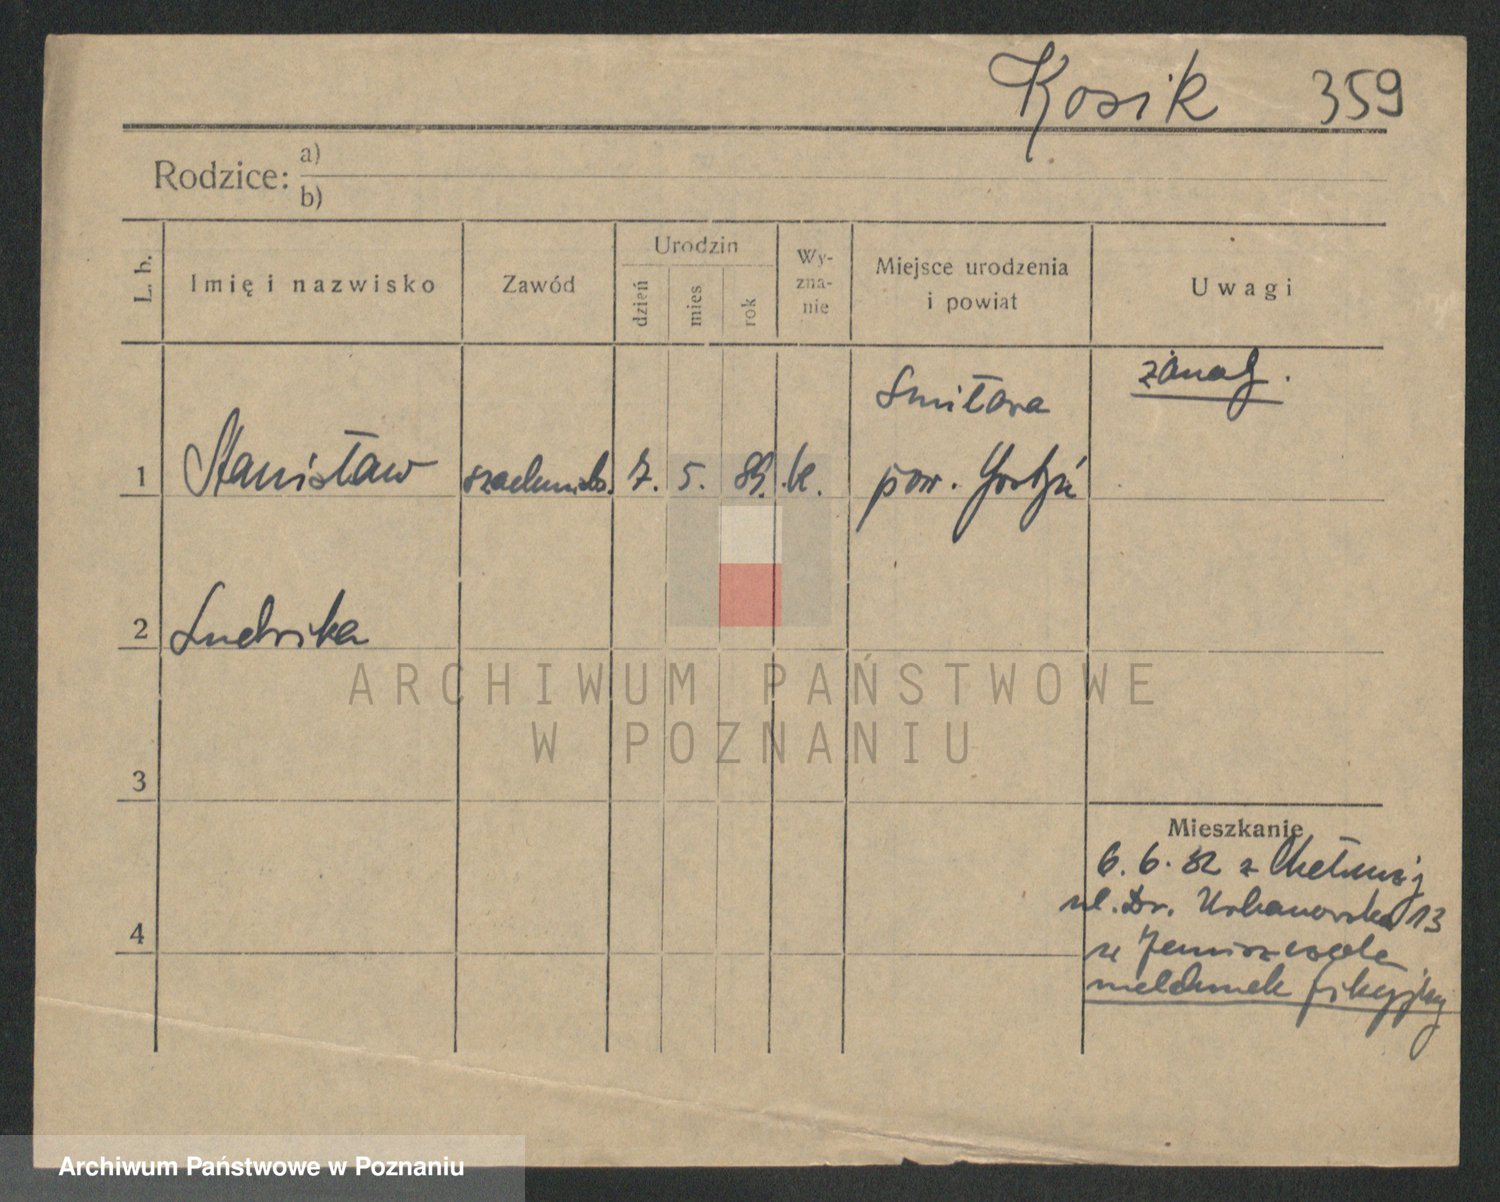 Kosik 359
Rodzice: a)
b)
L. b.
Imię i nazwisko
Zawód
Urodzin
dzień
mies
rok
Wy-
zna-
nie
Miejsce urodzenia
i powiat
Uwagi
żonaty.
Smiłowa
1 Stanisław 7. 5. 89. k. pow.
2 Ludwika
ARCHIWUM PAŃSTWOWE
W POZNANIU
3
Mieszkanie
6. 6. 32 z Chełmży
ul. Dr. Urbanowska 13
4
meldunek fikcyjny
Archiwum Państwowe w Poznaniu